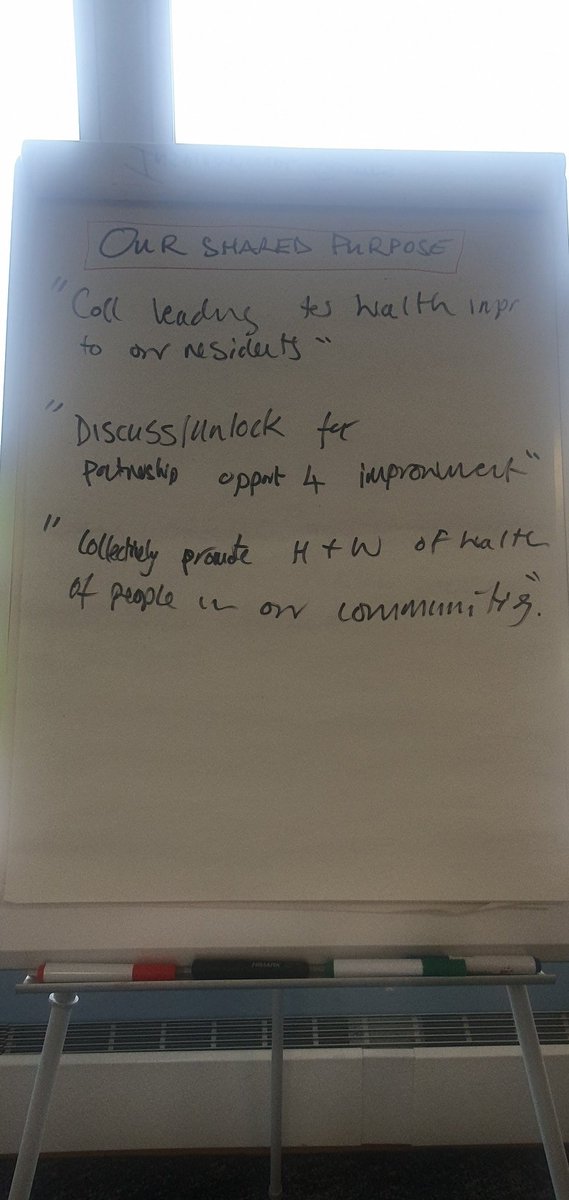 OUR SHARED PURPOSE
"Coll leading health impr
to our residents"
"DISCUSS/UNLOCK for
partnership opport 4 improvement"
"Collectively promote H + W of health
of people in our communities".